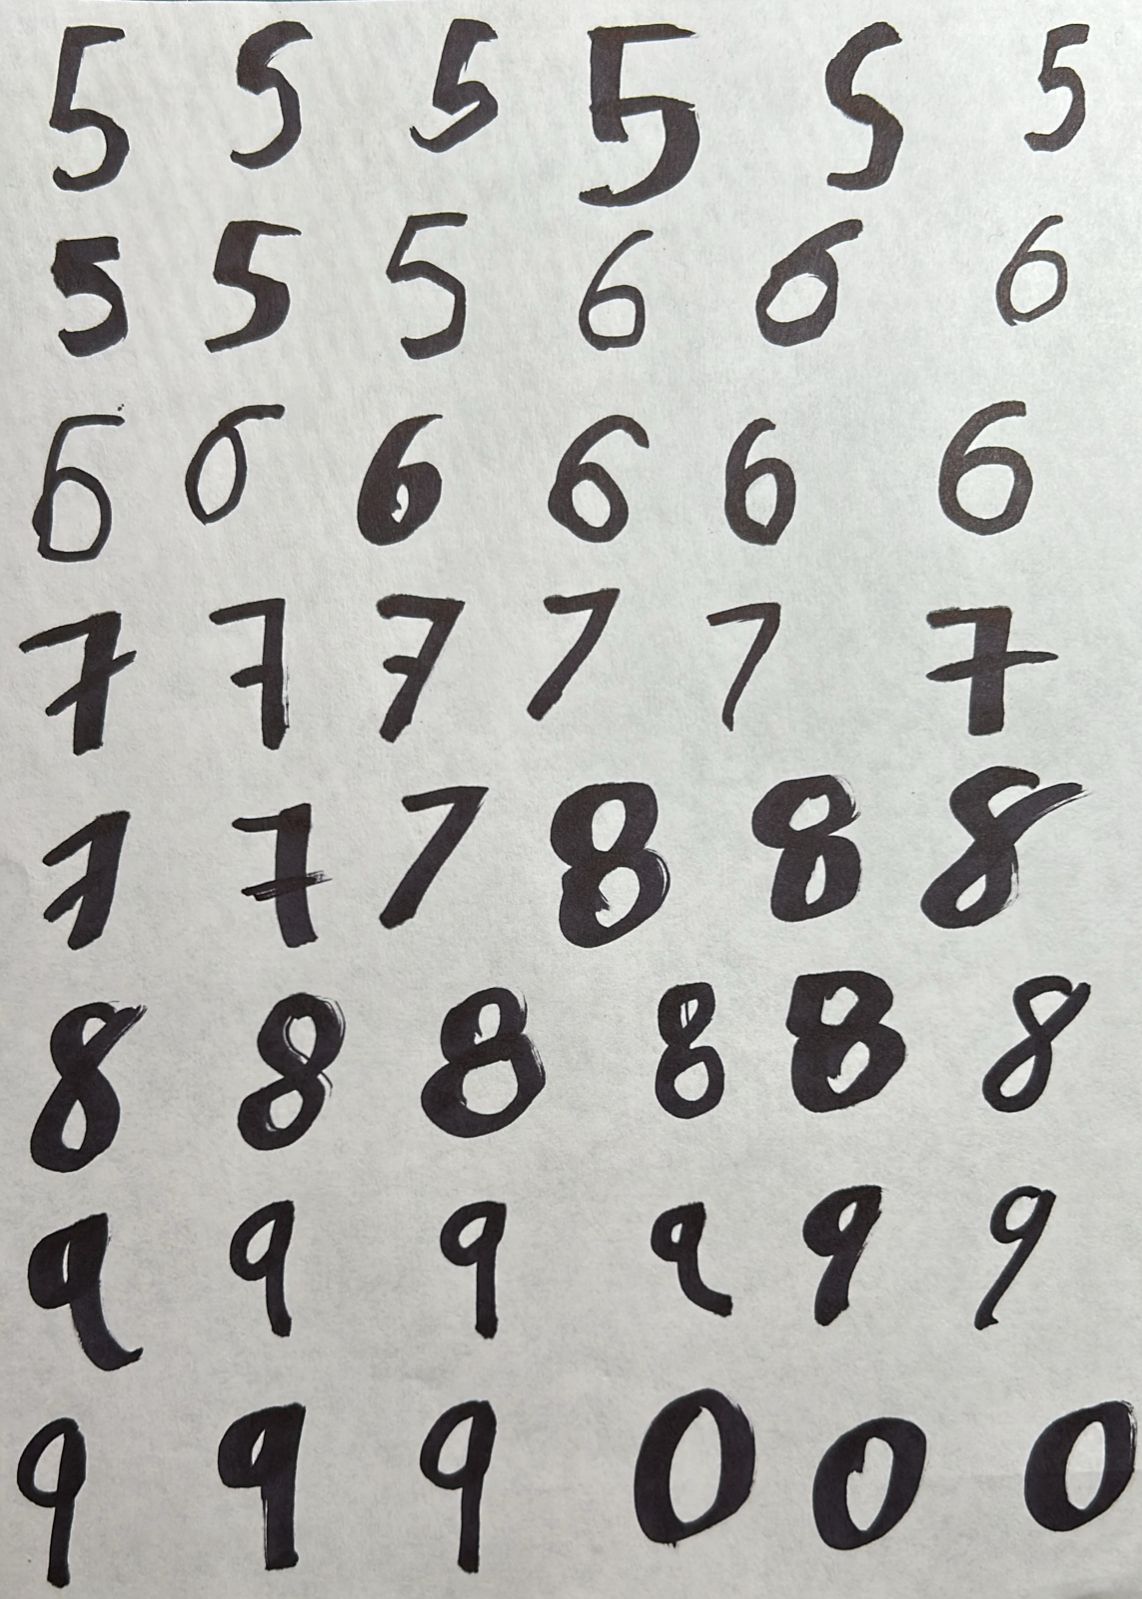 5 5 5 5 5 5
5 5 5 6 6 6
6 6 6 6 6 6
7 7 7 7 7 7
7 7 7 8 8 8
8 8 8 8 8 8
9 9 9 9 9 9
9 9 9 0 0 0